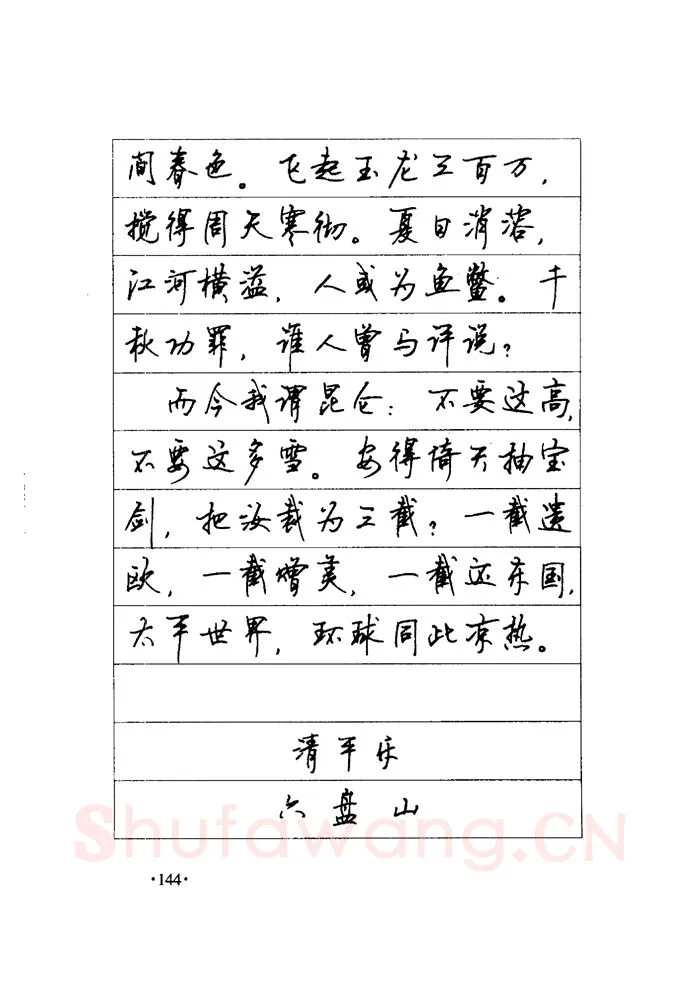 间春色。飞起玉龙三百万，
搅得周天寒彻。夏日消溶，
江河横溢，人或为鱼鳖。千
秋功罪，谁人曾与评说？
而今我谓昆仑：不要这高，
不要这多雪。安得倚天抽宝
剑，把汝裁为三截？一截遗
欧，一截赠美，一截还东国，
太平世界，环球同此凉热。
清平乐
六盘山
Shufawang.CN
·144·